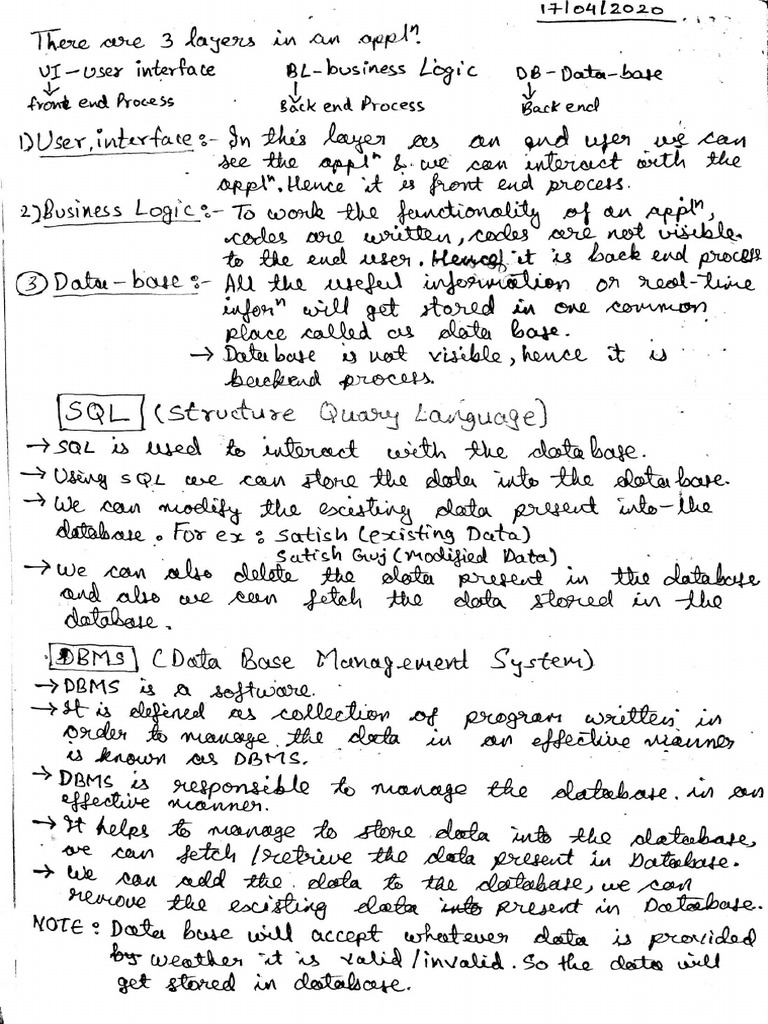 17/04/2020
There are 3 layers in an applⁿ.
UI - user interface BL - business Logic DB - Data-base
↓ ↓ ↓
front end Process Back end Process Back end
1) User interface :- In this layer as an end user we can
see the applⁿ & we can interact with the
applⁿ. Hence it is front end process.
2) Business Logic :- To work the functionality of an applⁿ,
codes are written, codes are not visible
to the end user. Hence it is back end process
③ Data-base :- All the useful information or real-time
inforⁿ will get stored in one common
place called as data base.
→ Database is not visible, hence it is
backend process.
SQL (Structure Quary Language)
→ SQL is used to interact with the database.
→ Using SQL we can store the data into the database.
→ We can modify the existing data present into the
database. For ex : Satish (existing Data)
Satish Guj (Modified Data)
→ We can also delete the data present in the database
and also we can fetch the data stored in the
database.
DBMS (Data Base Management System)
→ DBMS is a software.
→ It is defined as collection of program written in
order to manage the data in an effective manner
is known as DBMS.
→ DBMS is responsible to manage the database in an
effective manner.
→ It helps to manage to store data into the database,
we can fetch/retrive the data present in Database.
→ We can add the data to the database, we can
remove the existing data into present in Database.
NOTE : Data base will accept whatever data is provided
by weather it is valid/invalid. So the data will
get stored in database.